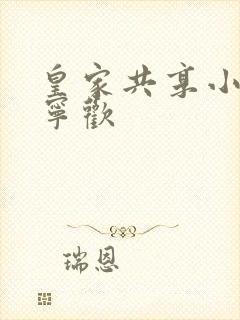 皇家共享小
寧歡
瑞恩